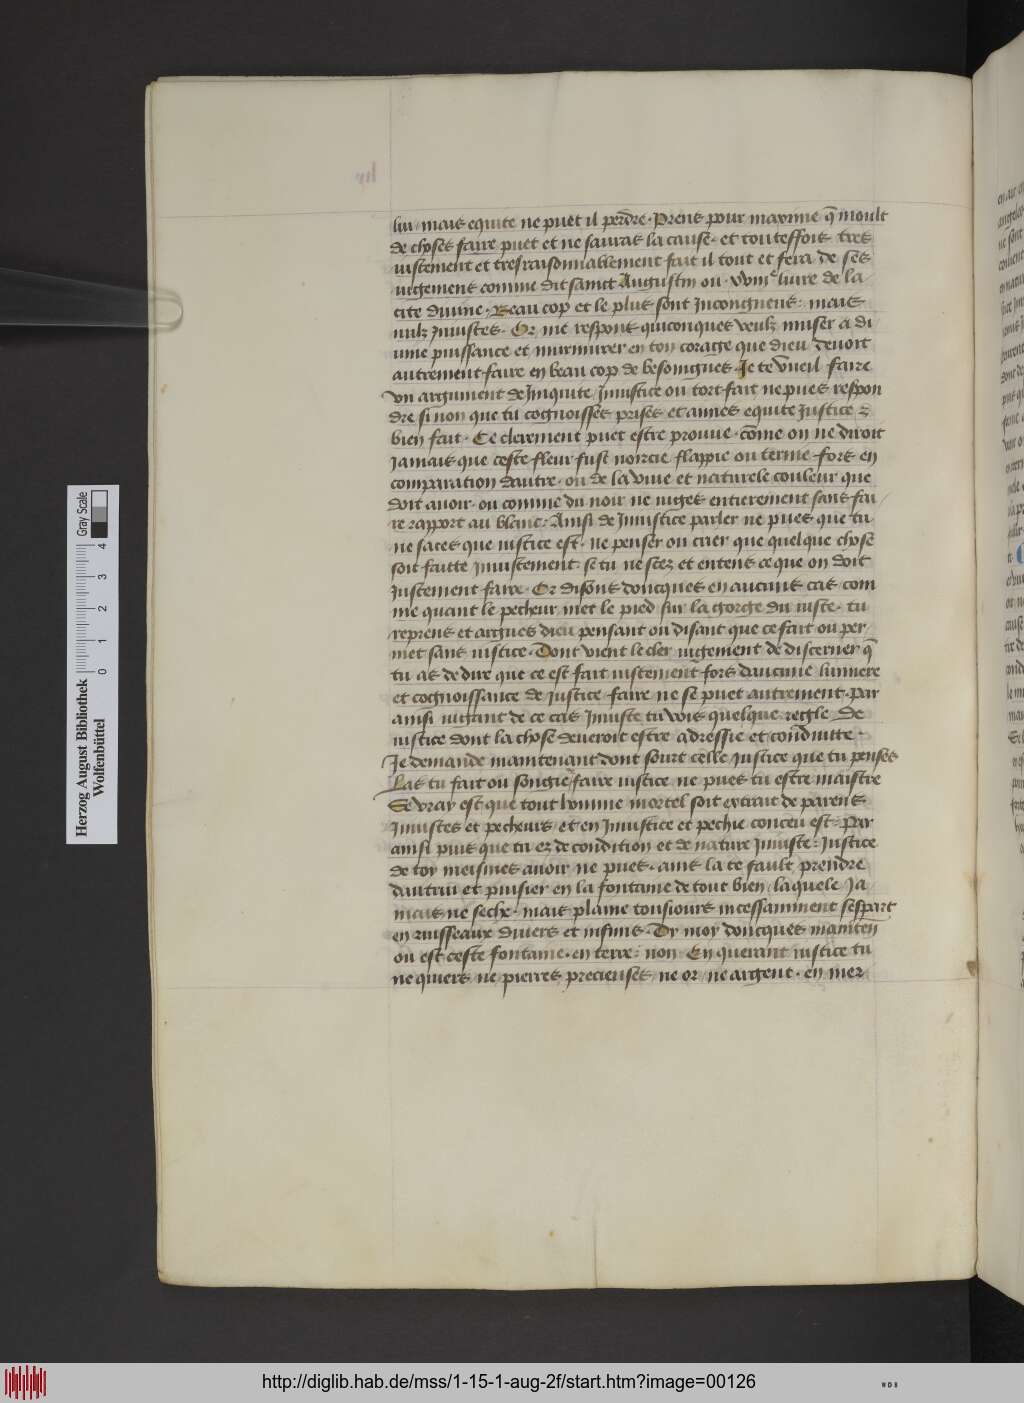 lui / mais equite ne puet il perdre · Prens pour maxime q̄ moult
de choses faire puet et ne sauras la cause · et toutesfois tres
iustement et tresraisonnablement fait il tout et fera de ses
iugemens comme dit sainct Augustin ou · xvmͤ liure de la
cite diuine · Beau cop et le plus sont Incongneus : mais
nulz Iniustes · Or me respons quiconques veulz muser a di
uine puissance et murmurer en ton corage que dieu deuoit
autrement faire en beau cop de besoingnes · Je te vueil faire
vn argument de Iniquite / Iniustice ou tort fait ne pues respon
dre si non que tu cognoisses prises et aimes equite Iustice &
bien fait · Ce clerement puet estre prouue · cōme on ne diroit
Iamais que ceste fleur fust noircie flappie ou ternie fors en
comparation dautre · ou de la viue et naturele couleur que
doit auoir · ou comme du noir ne iuges entierement sans fai
re rapport au blanc : Ainsi de Iniustice parler ne pues que tu
ne saces que iustice est · ne penser ou crier que quelque chose
soit faitte Iniustement se tu ne scez et entens ce que on doit
Iustement faire · Or disons doncques en aucuns cas com
me quant le pecheur met le pied sur la gorge du iuste · tu
reprens et argues dieu pensant ou disant que ce fait ou per
met sans iustice · Dont vient le cler iugement de discerner q̄
tu as de dire que ce est fait iustement fors daucune lumiere
et cognoissance de iustice · faire ne se puet autrement · Par
ainsi iugant de ce cas Iniuste tu vois quelque reigle de
iustice dont la chose deueroit estre adressie et conduitte ·
Je demande maintenant dont sourt celle iustice que tu penses
Las tu fait ou songie / faire iustice ne pues tu estre maistre
Se vray est que tout homme mortel soit extrait de parens
Iniustes et pecheurs et en Iniustice et pechie conceu est : Par
ainsi puis que tu ez de condition et de nature Iniuste : Iustice
de toy meismes auoir ne pues · ains la te fault prendre
dautrui et puisier en la fontaine de tout bien / laquele Ia
mais ne seche · mais plaine tousiours incessamment sespart
en ruisseaux diuers et infinis · Dy moy doncques mainten̄
ou est ceste fontaine · en terre : non · En querant iustice tu
ne quiers ne pierres precieuses / ne or / ne argent · en mer
Herzog August Bibliothek
Wolfenbüttel
0 1 2 3 4
Gray Scale
http://diglib.hab.de/mss/1-15-1-aug-2f/start.htm?image=00126